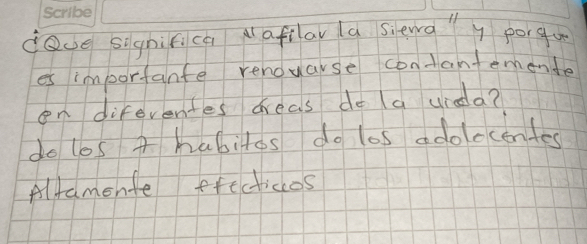 Scribe
¿Que significa "afilar la sierra" y porque
es importante renovarse contantemente
en diferentes areas de la vida?
de los 7 habitos de los adolecentes
Altamente efectivos